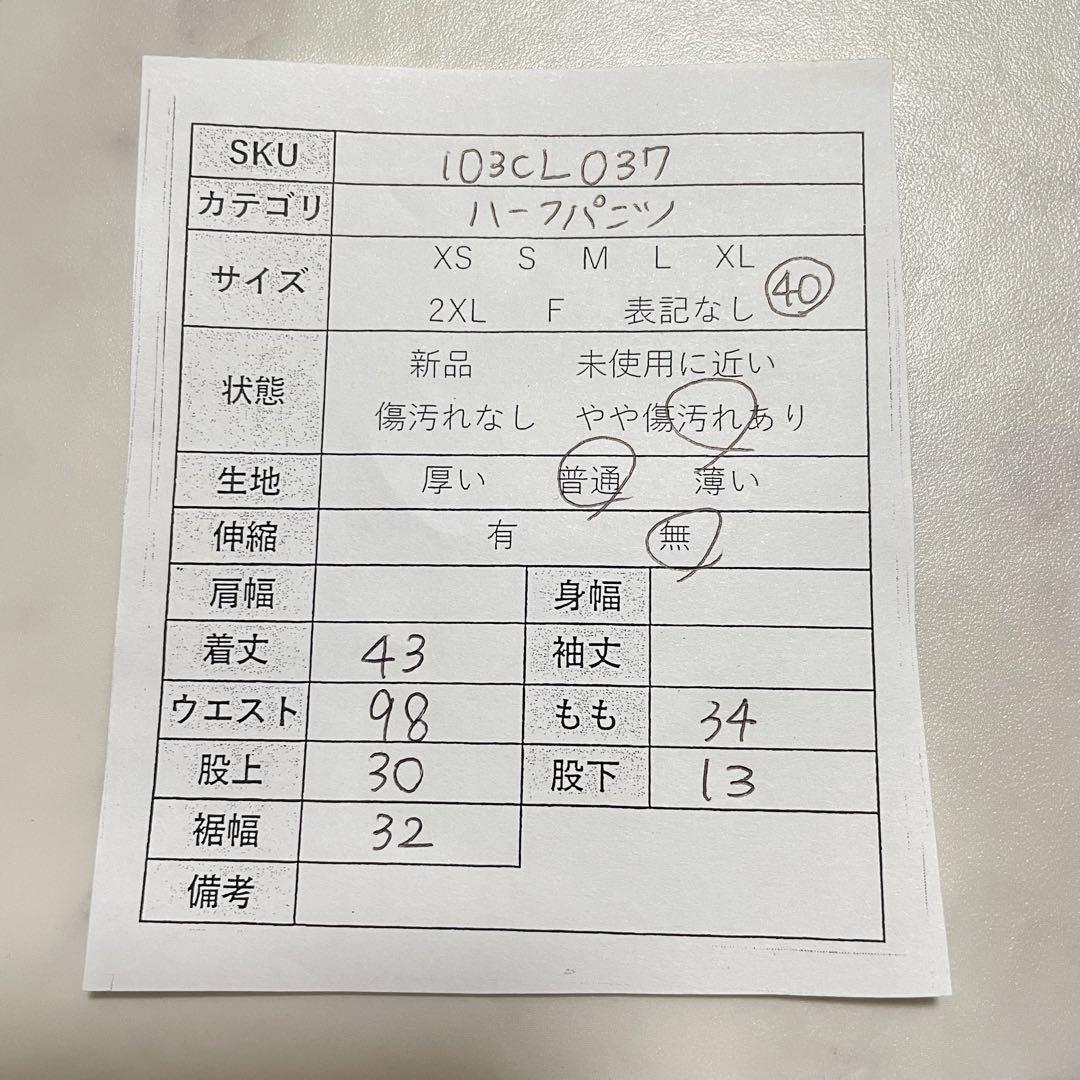 SKU 103CL037
カテゴリ ハーフパンツ
サイズ XS S M L XL
2XL F 表記なし 40
状態 新品 未使用に近い
傷汚れなし やや傷汚れあり
生地 厚い 普通 薄い
伸縮 有 無
肩幅 身幅
着丈 43 袖丈
ウエスト 98 もも 34
股上 30 股下 13
裾幅 32
備考